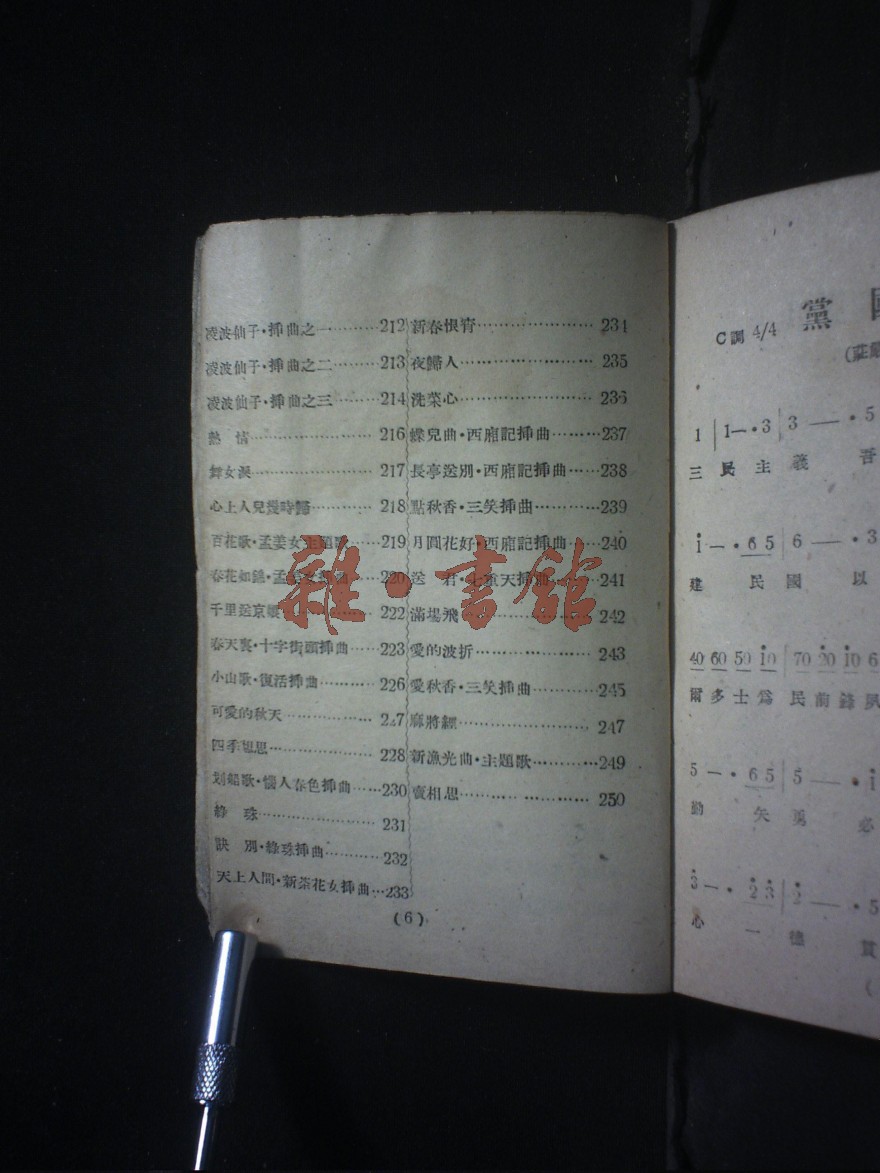 凌波仙子·揷曲之一…………212
凌波仙子·揷曲之二…………213
凌波仙子·揷曲之三…………214
熱　情…………216
舞女淚…………217
心上人兒幾時歸…………218
百花歌·孟姜女主題歌…………219
春花如錦·孟姜女揷曲…………220
千里送京娘…………222
春天裏·十字街頭揷曲…………223
小山歌·復活揷曲…………226
可愛的秋天…………227
四季相思…………228
划船歌·惱人春色揷曲…………230
綠　珠…………231
訣　別·綠珠揷曲…………232
天上人間·新茶花女揷曲…233
新春恨宵…………234
夜歸人…………235
洗菜心…………236
蝶兒曲·西廂記揷曲…………237
長亭送別·西廂記揷曲…………238
點秋香·三笑揷曲…………239
月圓花好·西廂記揷曲…………240
送　君·七重天揷曲…………241
滿場飛…………242
愛的波折…………243
愛秋香·三笑揷曲…………245
麻將經…………247
新漁光曲·主題歌…………249
賣相思…………250
(6)
雜·書館
黨 國
C調 4/4
(莊嚴
1 | 1—·3 | 3 — ·5
三 民 主 義 吾
1—·6 5 | 6 — ·3
建 民 國 以
40 60 50 10 | 70 20 10 6
爾 多 士 爲 民 前 鋒 夙
5—·6 5 | 5 — ·1
勤 矢 勇 必
3—·2 3 | 2 — ·5
心 一 德 貫